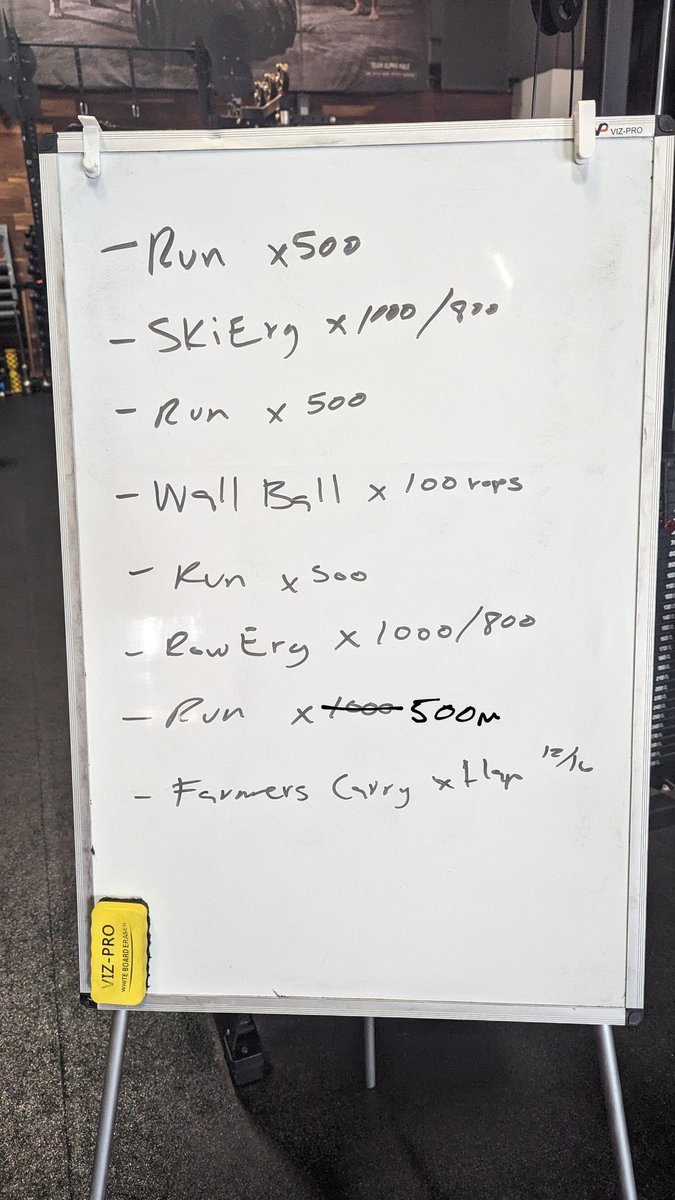 TEAM ALPHA HULF
VIZ-PRO
- Run x500
- SKiErg x 1000/800
- Run x 500
- Wall Ball x 100 reps
- Run x 500
- RowErg x 1000/800
- Run x 1000 500m
- Farmers Carry x 1 lap 12/16
VIZ-PRO
WHITE BOARD ERASER